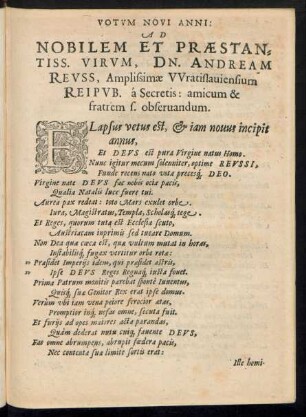 VOTVM NOVI ANNI:
AD
NOBILEM ET PRÆSTAN-
TISS. VIRVM, DN. ANDREAM
REVSS, Amplissimæ VVratislauiensium
REIPVB. à Secretis: amicum &
fratrem s. obseruandum.
ELapsus vetus est, & iam nouus incipit
annus,
Et DEVS est pura Virgine natus Homo.
Nunc igitur mecum solenniter, optime REVSSI,
Funde recens nato vota precesq́, DEO.
Virgine nate DEVS fac nobis ocia pacis,
Qualia Natalis luce fuere tui.
Aurea pax redeat: toto Mars exulet orbe.
Iura, Magistratus, Templa, Scholasq́, rege.
Et Reges, quorum tuta est Ecclesia scuto,
Austriacam inprimis sed tueare Domum.
Non Dea quæ cæca est, quæ vultum mutat in horas,
Instabiliq́, fugax vertitur orbe rota:
Præsidet Imperijs idem, qui præsidet astris,
Ipse DEVS Reges Regnaq́, iusta fouet.
Prima Patrum monitis parebat sponte Iuuentus,
Quisq́, suæ Genitor Rex erat ipse domus.
Verùm vbi iam vena peiore ferocior ætas,
Promptior inq́, nefas omne, secuta fuit.
Et furijs ad opes maiores acta parandas,
Quàm dederat nutu cuiq́, fauente DEVS,
Fas omne abrumpens, abrupit fœdera pacis,
Nec contenta suæ limite sortis erat:
Iste homi-